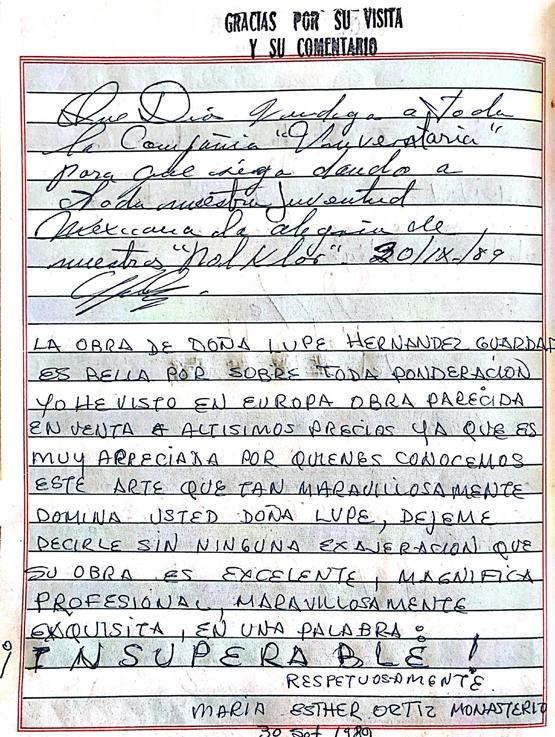 GRACIAS POR SU VISITA
Y SU COMENTARIO
Que Dios vendiga a toda
la Compañia "Unyversitaria"
para que siega dando a
toda nuestra juventud
Mexicana la alegria de
nuestros "Folklor". 30/IX-/89
LA OBRA DE DOÑA LUPE HERNANDEZ GUARDAD
ES BELLA POR SOBRE TODA PONDERACION
YO HE VISTO EN EUROPA OBRA PARECIDA
EN VENTA A ALTISIMOS PRECIOS YA QUE ES
MUY APRECIADA POR QUIENES CONOCEMOS
ESTE ARTE QUE TAN MARAVILLOSAMENTE
DOMINA USTED DOÑA LUPE, DEJEME
DECIRLE SIN NINGUNA EXAJERACION QUE
SU OBRA ES EXCELENTE, MAGNIFICA
PROFESIONAL, MARAVILLOSAMENTE
EXQUISITA, EN UNA PALABRA:
¡INSUPERABLE!
RESPETUOSAMENTE
MARIA ESTHER ORTIZ MONASTERIO
30 Set 1989